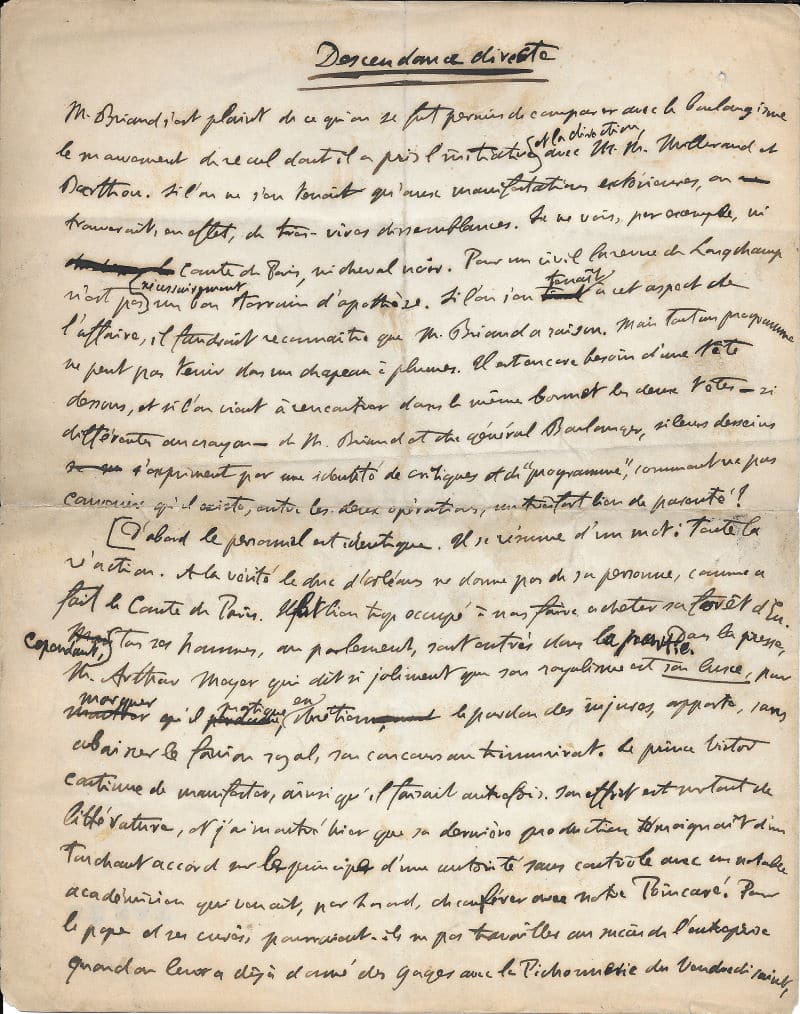 Descendance directe
M. Briand s'est plaint de ce qu'on se fût permis de comparer avec le boulangisme
le mouvement de recul dont il a pris l'initiative et la direction, avec M. M. Millerand et
Barthou. Si l'on ne s'en tenait qu'aux manifestations extérieures, on
trouverait, en effet, de très vives dissemblances. Je ne vois, par exemple, ni
Comte de Paris, ni cheval noir. Pour un civil la revue de Longchamp
n'est pas nécessairement un bon terrain d'apothéose. Si l'on s'en tenait à cet aspect de
l'affaire, il faudrait reconnaître que M. Briand a raison. Mais tout un programme
ne peut pas tenir dans un chapeau à plumes. Il est encore besoin d'une tête
dessous, et si l'on vient à rencontrer dans le même bonnet les deux têtes — si
différentes au crayon — de M. Briand et du général Boulanger, si leurs desseins
s'expriment par une identité de critiques et de "programme", comment ne pas
convenir qu'il existe, entre les deux opérations, un lien de parenté ?
[D'abord le personnel est identique. Il se résume d'un mot : toute la
réaction. A la vérité le duc d'Orléans ne donne pas de sa personne, comme a
fait le Comte de Paris. Il est bien trop occupé à nous faire acheter sa forêt d'Eu.
Cependant, tous ses hommes, au parlement, sont entrés dans la partie. Dans la presse,
M. Arthur Meyer qui dit si joliment que son royalisme est son luxe, pour
marquer qu'il pratique en chrétien le pardon des injures, apporte, sans
abaisser le fanion royal, son concours au triumvirat. Le prince Victor
continue de manifester, ainsi qu'il faisait autrefois. Son effort est surtout de
littérature, et j'ai montré hier que sa dernière production témoignait d'un
touchant accord sur le principe d'une autorité sans contrôle avec un notable
académicien qui venait, par hasard, de conférer avec notre Poincaré. Pour
le pape et ses curés, pourraient-ils ne pas travailler au succès de l'entreprise
quand on leur a déjà donné des gages avec la Pichonnerie du Vendredi saint,